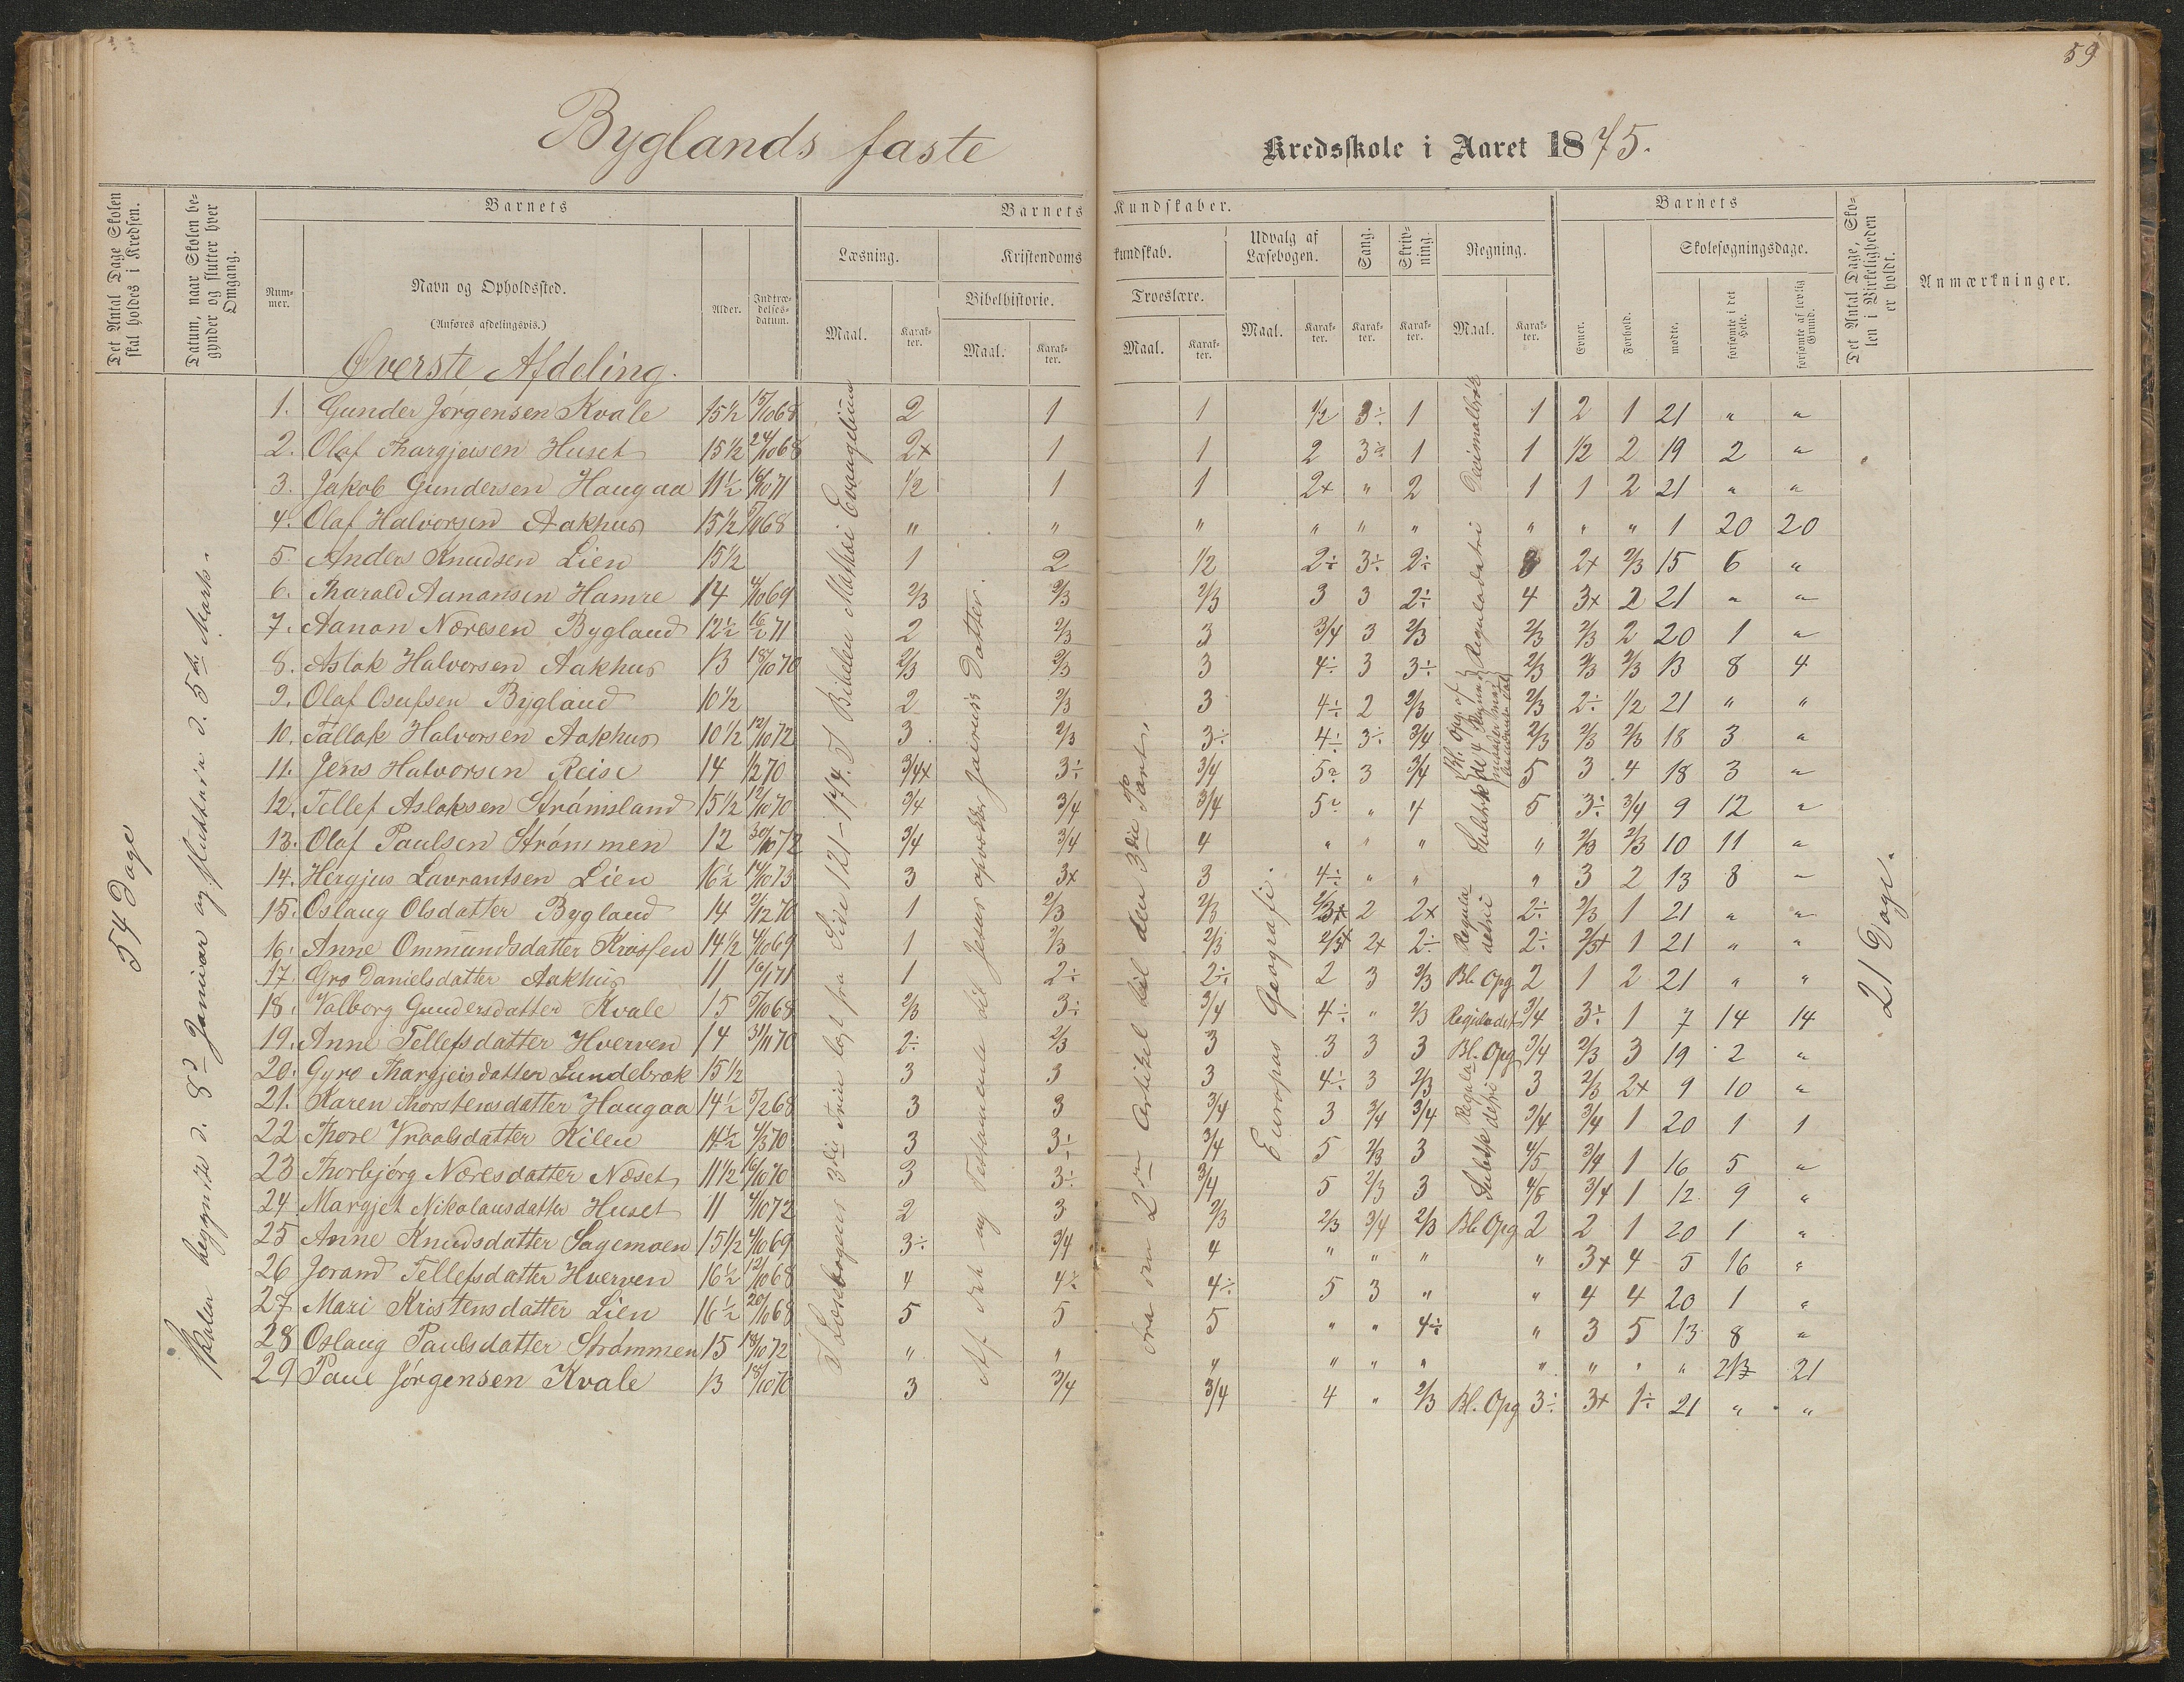 59
Byglands faste Kredsskole i Aaret 1875.
Det Antal Dage Skolen skal holdes i Kredsen.
Datum, naar Skolen begynder og slutter hver Omgang.
Barnets
Nummer.
Navn og Opholdssted.
(Anføres afdelingsvis.)
Alder.
Indtrædelsesdatum.
Barnets Kundskaber.
Læsning.
Maal.
Karakter.
Kristendomskundskab.
Bibelhistorie.
Maal.
Karakter.
Troeslære.
Maal.
Karakter.
Udvalg af Læsebogen.
Maal.
Karakter.
Sang.
Karakter.
Skrivning.
Karakter.
Regning.
Maal.
Karakter.
Barnets
Evner.
Forhold.
Skolesøgningsdage.
mødte.
forsømte i det Hele.
forsømte af lovlig Grund.
Det Antal Dage, Skolen i Virkeligheden er holdt.
Anmærkninger.
Øverste Afdeling.
54 Dage
Skolen begyndte d. 8d Januar og sluttede d. 5te Marts.
I Læsebogens 3die Trin lest fra Side 121-174. I Bibelen Matthæi Evangelium
Af det ny Testamente til Jesus opvækker Jairus's Datter.
fra den 2den Artikel til den 3die Part.
Europas Geografi.
21 Dage.
1. Gunder Jørgensen Kvale 15½ 15/10 68 2 1 1 1/2 3÷ 1 Decimalbrøk 1 2 1 21 " "
2. Olaf Thargjeisen Huset 15½ 24/10 68 2x 1 1 2 3÷ 1 1 1/2 2 19 2 "
3. Jakob Gundersen Haugaa 11½ 16/10 71 1/2 1 1 2x " 2 1 1 2 21 " "
4. Olaf Halvorsen Aakhus 15½ 5/11 68 " " " " " " " " " 1 20 20
5. Anders Knudsen Lien 15½ 1 2 1/2 2÷ 3÷ 2÷ Reguladetri 3 2x 2/3 15 6 "
6. Tharald Aanansen Hamre 14 4/10 69 2/3 2/3 2/3 3 3 2÷ 4 3x 2 21 " "
7. Aanon Næresen Bygland 12½ 16/2 71 2 2/3 3 3/4 3 2/3 2/3 2/3 2 20 1 "
8. Aslak Halvorsen Aakhus 13 18/10 70 2/3 2/3 3 4÷ 3 3÷ 2/3 2/3 2/3 13 8 4
9. Olaf Osufsen Bygland 10½ 2 2/3 3 4÷ 2 2/3 Bl. Opg. af de 4 Regningsmaader med benævnte Tal 2/3 2÷ 1/2 21 " "
10. Tallak Halvorsen Aakhus 10½ 12/10 72 3 2/3 3÷ 4÷ 3÷ 3/4 2/3 2/3 2/3 18 3 "
11. Jens Halvorsen Reise 14 1/2 70 3/4x 3÷ 3/4 5÷ 3 3/4 5 3 4 18 3 "
12. Tellef Aslaksen Strømsland 15½ 12/10 70 3/4 3/4 3/4 5÷ " 4 Subtrk 5 3÷ 3/4 9 12 "
13. Olaf Paulsen Strømmen 12 30/10 72 3/4 3/4 4 " " " " 2/3 2/3 10 11 "
14. Hergjus Lavrantsen Lien 16½ 14/10 73 3 3x 3 4÷ " " " 3 2 13 8 "
15. Oslaug Olsdatter Bygland 14 2/12 70 1 2/3 2/3 2/3x 2 2x Reguladetri 2÷ 2/3 1 21 " "
16. Anne Ommundsdatter Krossen 14½ 4/10 69 1 2/3 2/3 2/3x 2x 2÷ 2÷ 2/3x 1 21 " "
17. Gro Danielsdatter Aakhus 11 16/1 71 1 2÷ 2÷ 2 3 2/3 Bl. Opg 2 1 2 21 " "
18. Valborg Gundersdatter Kvale 15 5/10 68 2/3 3÷ 3/4 4÷ " 2/3 Reguladet 3/4 3÷ 1 7 14 14
19. Anne Tellefsdatter Hverven 14 31/11 70 2÷ 2/3 3 3 3 3 Bl. Opg 3/4 2/3 3 19 2 "
20. Gyro Thargjeisdatter Lundebrok 15½ 3 3 3 4÷ 3 2/3 Reguladetri 3 2/3 2x 9 10 "
21. Karen Thorstensdatter Haugaa 14½ 5/2 68 3 3 3/4 3 3/4 3/4 3/4 3/4 1 20 1 1
22 Thore Vraalsdatter Kilen 14½ 4/3 70 3 3÷ 3/4 5 2/3 3 Subtk 4/5 3/4 1 16 5 "
23 Thorbjørg Næresdatter Næset 11½ 16/10 70 3 3÷ 3/4 5 2/3 3 4/5 3/4 1 12 9 "
24 Margjet Nikolausdatter Huset 11 4/10 72 2 3 2/3 2/3 3/4 2/3 Bl. Opg 2 2 1 20 1 "
25 Anne Knudsdatter Sagemoen 15½ 4/10 69 3÷ 3/4 4 " " " " 3x 4 5 16 "
26 Jorand Tellefsdatter Hverven 16½ 12/10 68 4 4÷ 4÷ 5 3 " " 4 4 20 1 "
27 Mari Kristensdatter Lien 16½ 20/10 68 5 5 5 " " 4÷ " 3 5 13 8 "
28 Oslaug Paulsdatter Strømmen 15 18/10 72 " " " " " " " " " " 21 21
29 Paul Jørgensen Kvale 13 18/10 70 3 3/4 3/4 4 " 2/3 Bl. Opg 3÷ 3x 1÷ 21 " "